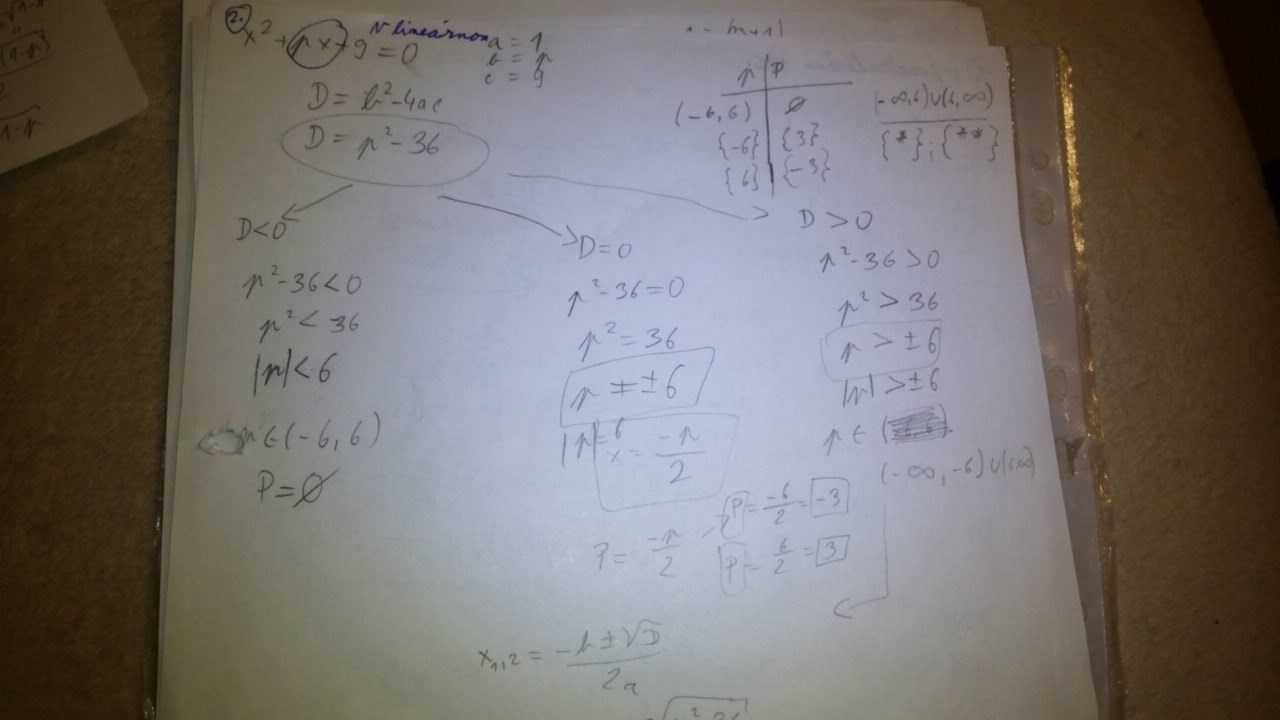 2. x² + px + 9 = 0
v lineárnom
a = 1
b = p
c = 9
D = b² - 4ac
D = p² - 36
p | P
(-6, 6) | ∅
{-6} | {3}
{6} | {-3}
(-∞, 6) ∪ (6, ∞)
{*} ; {**}
D < 0
p² - 36 < 0
p² < 36
|p| < 6
p ∈ (-6, 6)
P = ∅
D = 0
p² - 36 = 0
p² = 36
p = ±6
|p| = 6
x = -p/2
P = -p/2
P = -6/2 = -3
P = 6/2 = 3
D > 0
p² - 36 > 0
p² > 36
p > ±6
|p| > ±6
p ∈
(-∞, -6) ∪ (6, ∞)
x₁,₂ = (-b ± √D)/2a